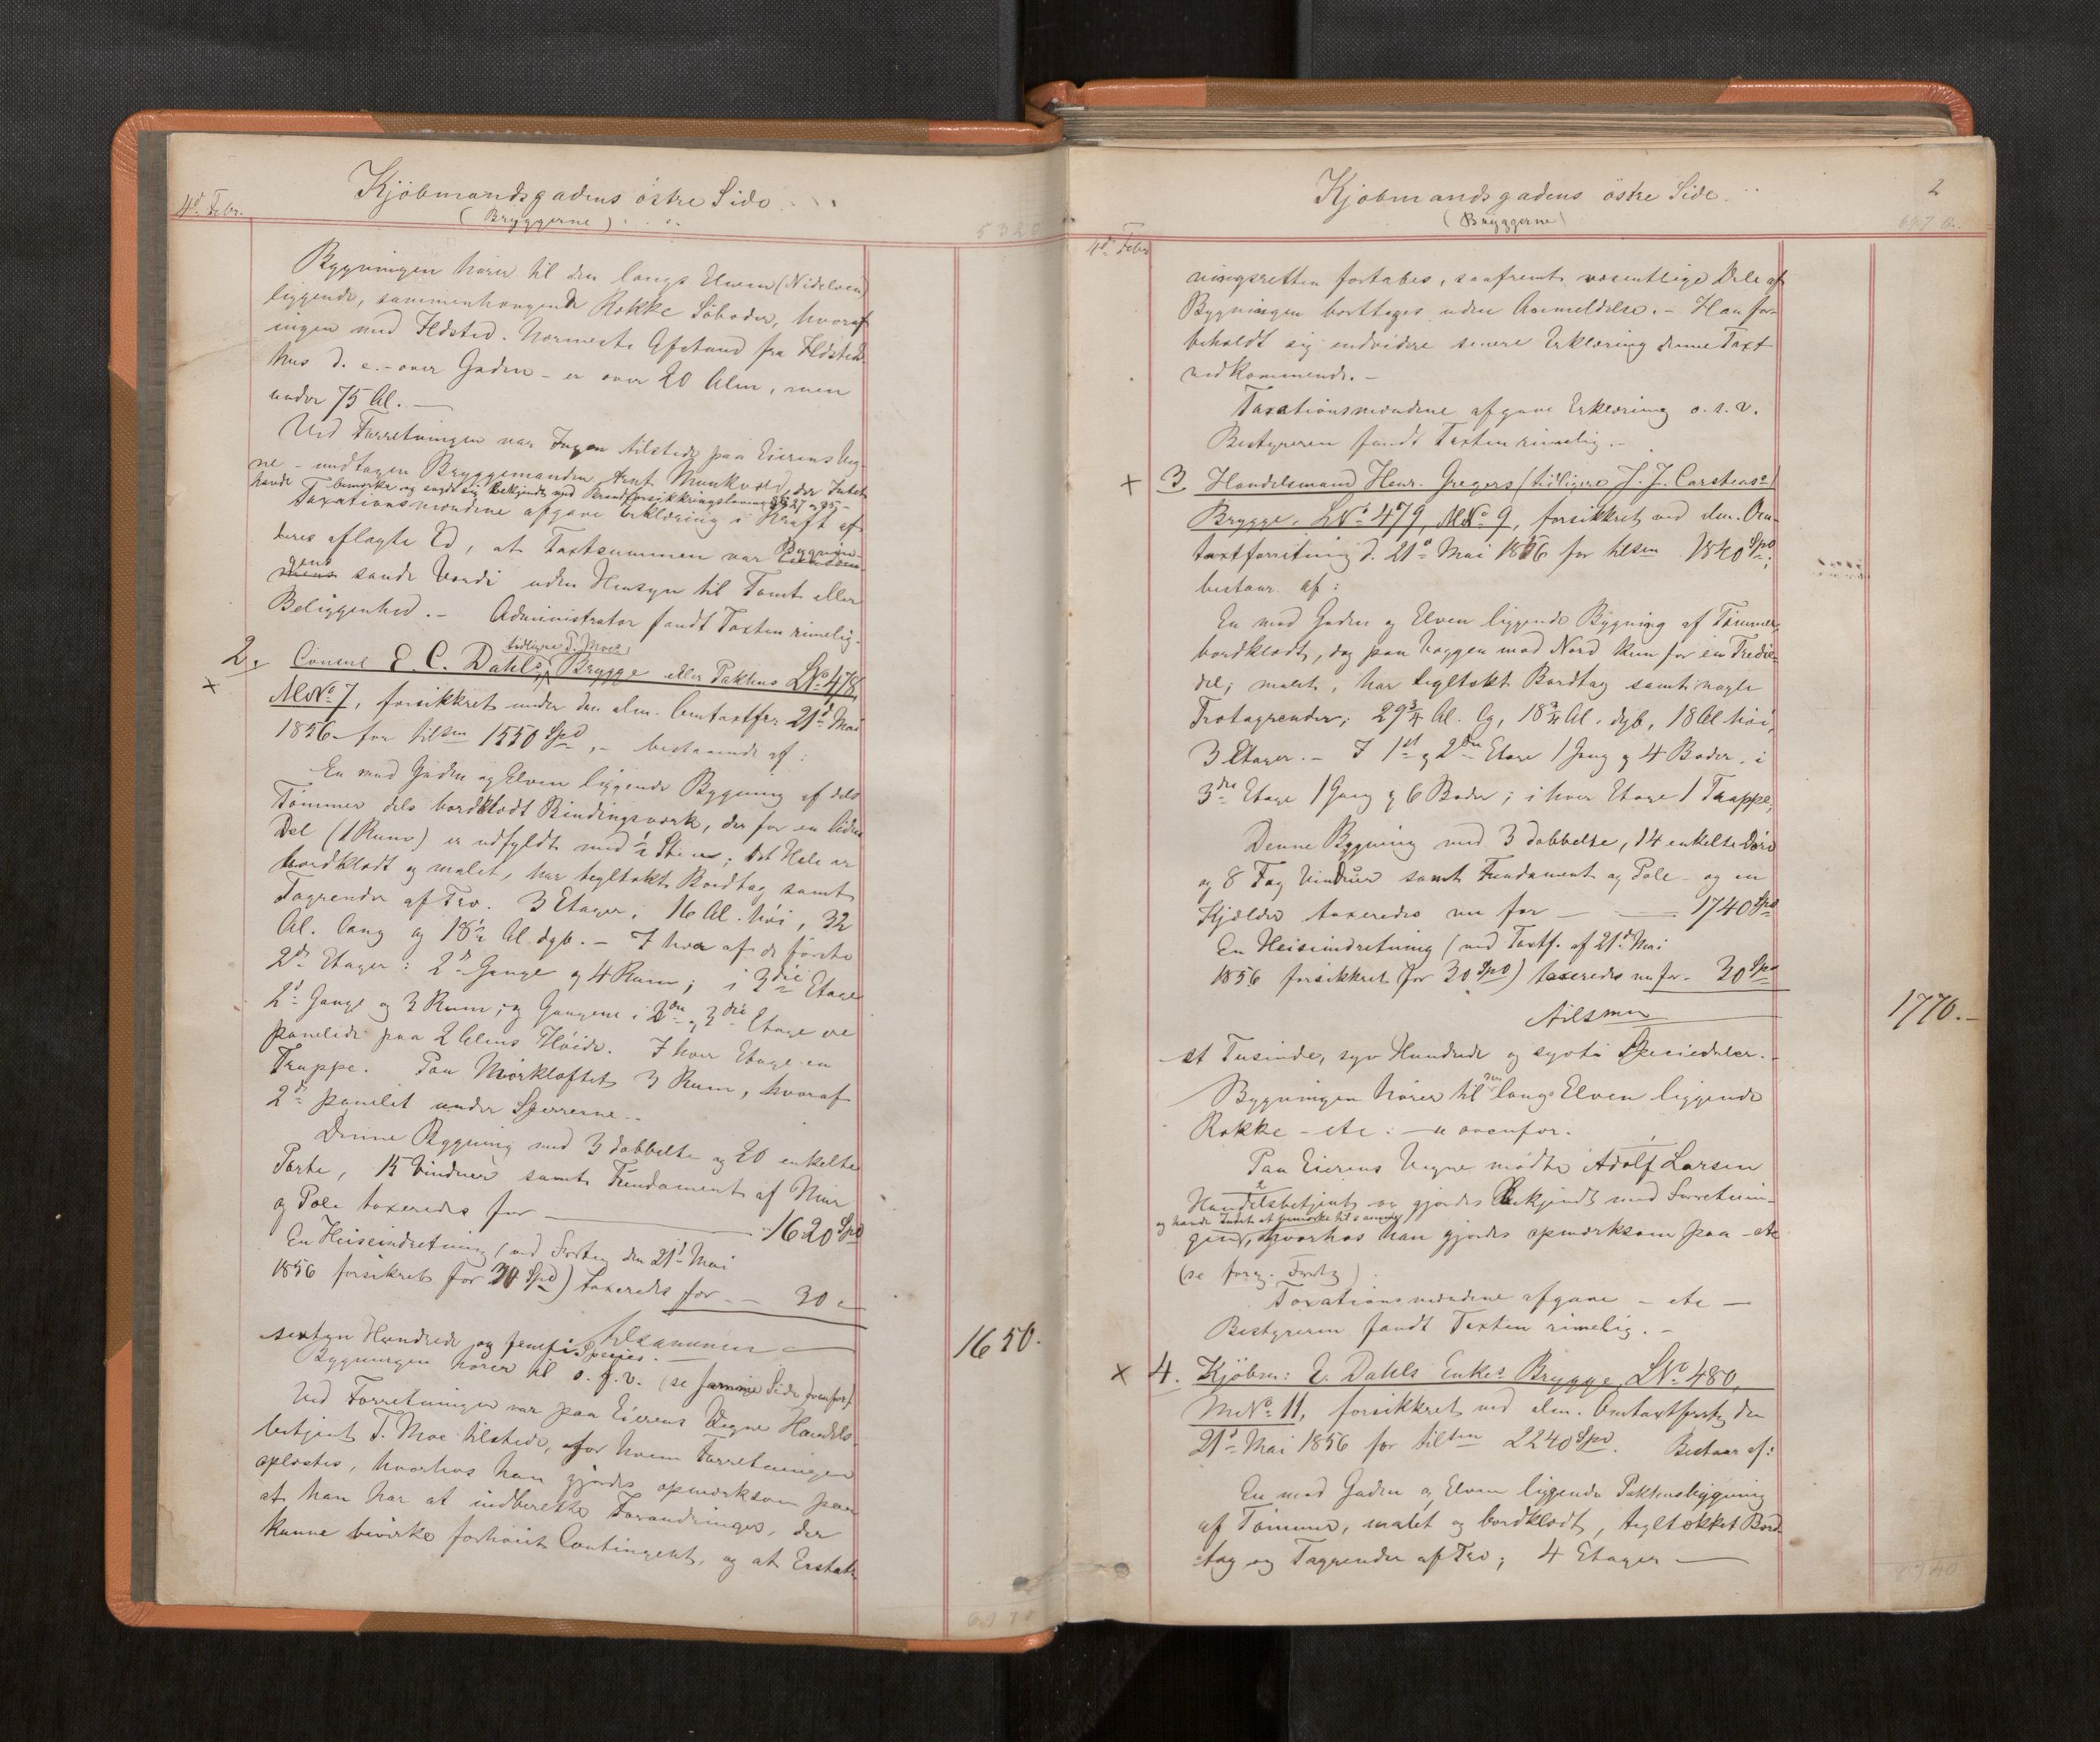 Kjöbmandsgadens östre Side
(Bryggerne)
4d. Febr.
5320
Bygningen hører til den langs Elven (Nidelven)
liggende, sammenhængende Række Söboder, hvoraf
ingen med Ildsted. Nærmeste Afstand fra Ildsteds
hus d. e. - over Gaden - er over 20 Alen, men
under 75 Al. —
Ved Forretningen var Ingen tilstede paa Eierens Veg-
ne - undtagen Bryggemanden Arnt Munkvold, der Intet
havde bemærke og sagde sig bekjendt med Brandforsikkringslovens §§ 27 og 35 -
Taxationsmændene afgave Erklæring i Kraft af
deres aflagte Ed, at Taxtsummen var Bygnin-
gens sande Værdi uden Hensyn til Tomt eller
Beliggenhed. - Administrator fandt Taxten rimelig.
tidligere T. Moes
2. Consul E. C. Dahls, Brygge eller Pakhus LNo 478,
x
MNo 7, forsikkret under den alm. Omtaxtfor: 21d Mai
1856 for tilsm 1550 Spd, - bestaaende af:
En mod Gaden og Elven liggende Bygning af dels
Tömmer dels bordklædt Bindingsværk, der for en liden
Del (1 Rum) er udfyldt med ½ Steen; det Hele er
bordklædt og malet, har tegltækt Bordtag samt
Tagrender af Træ. 3 Etager, 16 Al. höi, 32
Al. lang og 18½ Al. dyb. - I hver af de förste
2de Etager: 2de Gange og 4 Rum; i 3die Etage
2d Gange og 3 Rum; og Gangene i 2den og 3die Etage ere
panelede paa 2 Alens Höide. I hver Etage en
Trappe. Paa Mörkloftet 3 Rum, hvoraf
2de panelet under Sperrerne. -
Denne Bygning med 3 dobbelte og 20 enkelte
Porte, 15 Vinduer samt Fundament af Muur
og Pæle taxeredes for — 1620 Spd
En Heiseindretning (ved Forretn den 21d Mai
1856 forsikret for 30 Spd) taxeredes for - - 30 "
Tilsammen
1650.
sextyn Hundrede og femti Species. -
Bygningen hører til o. s. v. (se samme Side ovenfor).
Ved Forretningen var paa Eierens Vegne Handels-
betjent T. Moe tilstede, for hvem Forretningen
oplæstes, hvorhos han gjordes opmærksom paa
at han har at indberette Forandringer, der
kunne bevirke forhöiet Contingent, og at Erstat-
6970
Kjöbmandsgadens östre Side.
(Bryggerne)
2
4d. Febr
ningsretten fortabes, saafremt væsentlige Dele af
Bygningen borttages uden Anmeldelse. - Han for-
beholdt sig endvidere senere Erklæring denne Taxt
vedkommende. -
Taxationsmændene afgave Erklæring o. s. v.
Bestyreren fandt Taxten rimelig. -
x 3 Handelsmand Henr. Gregers (tidligere J. J. Carstens)
Brygge, LNo 479, MNo 9, forsikkret ved alm. Om-
taxtforretning d. 21d Mai 1856 for tilsm 1840 Spd;
bestaar af:
En mod Gaden og Elven liggende Bygning af Tömmer,
bordklædt, dog paa Væggen mod Nord kun for en Tredie-
del; malet, har tegltækt Bordtag samt nogle
Trætagrender; 29¾ Al. lg, 18¾ Al. dyb, 18 Al höi,
3 Etager. - I 1st og 2den Etage 1 Gang og 4 Boder, i
3die Etage 1 Gang og 6 Boder; i hver Etage 1 Trappe;
Denne Bygning med 3 dobbelte, 14 enkelte Döre
og 8 Fag Vinduer samt Fundament og Pæle - og en
Kjælder taxeredes nu for — — 1740 Spd
En Heiseindretning (ved Taxtf. af 21d Mai
1856 forsikkret for 30 Spd) taxeredes nu for - 30 Spd
Tilsmn
1770. -
et Tusinde, syv Hundrede og syvti Speciedaler. -
Bygningen hører til den langs Elven liggende
Række - etc. - se ovenfor.
Paa Eierens Vegne mødte Adolf Larsen
Handelsbetjent og gjordes bekjendt med Forretnin-
og havde Intet at bemærke til samme
gen, hvorhos han gjordes opmærksom paa - etc
(se forrg. Forretg).
Taxationsmændene afgave - etc —
Bestyreren fandt Taxten rimelig. -
x 4. Kjöbm: E. Dahls Enkes Brygge, LNo 480,
MNo 11, forsikkret ved alm. Omtaxtforretg den
21d Mai 1856 for tilsm 2240 Spd. Bestaar af:
En mod Gaden og Elven liggende Pakhusbygning
af Tömmer, malet og bordklædt, tegltækket Bord-
tag og Tagrender af Træ; 4 Etager —